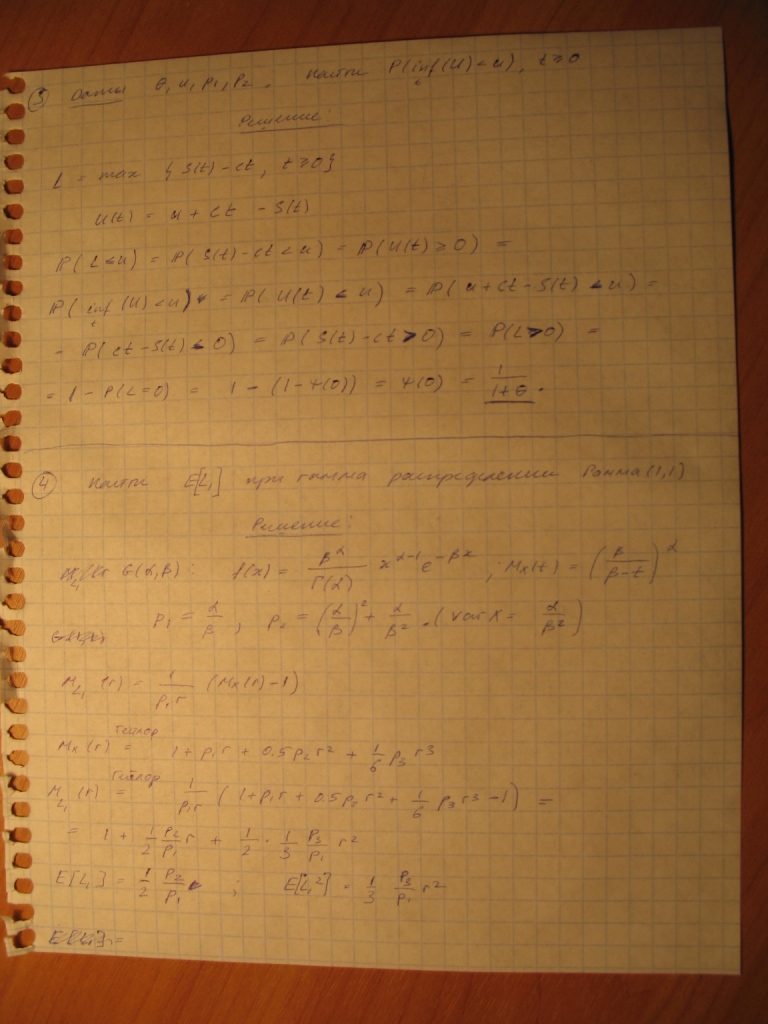 ③ Даты θ, u, p₁, p₂. Найти P(inf_t(U) < u), t ≥ 0
Решение:
L = max { S(t) - ct, t ≥ 0 }
U(t) = u + ct - S(t)
P(L < u) = P(S(t) - ct < u) = P(U(t) ≥ 0) =
P(inf_t(U) < u) = P(U(t) < u) = P(u + ct - S(t) < u) =
= P(ct - S(t) < 0) = P(S(t) - ct > 0) = P(L > 0) =
= 1 - P(L=0) = 1 - (1 - Ψ(0)) = Ψ(0) = 1/(1+θ).
④ Найти E[L₁] при гамма распределении Гамма(1,1)
Решение:
G(α,β): f(x) = β^α/Γ(α) x^(α-1) e^(-βx) ; Mx(t) = (β/(β-t))^α
p₁ = α/β ; p₂ = (α/β)² + α/β². (Var X = α/β²)
M_L₁(r) = 1/(p₁r) (Mx(r) - 1)
Mx(r) =Тейлор 1 + p₁r + 0.5p₂r² + 1/6 p₃r³
M_L₁(r) =Тейлор 1/(p₁r) (1 + p₁r + 0.5p₂r² + 1/6 p₃r³ - 1) =
= 1 + 1/2 p₂/p₁ r + 1/2 · 1/3 p₃/p₁ r²
E[L₁] = 1/2 p₂/p₁ ; E[L₁²] = 1/3 p₃/p₁ r²